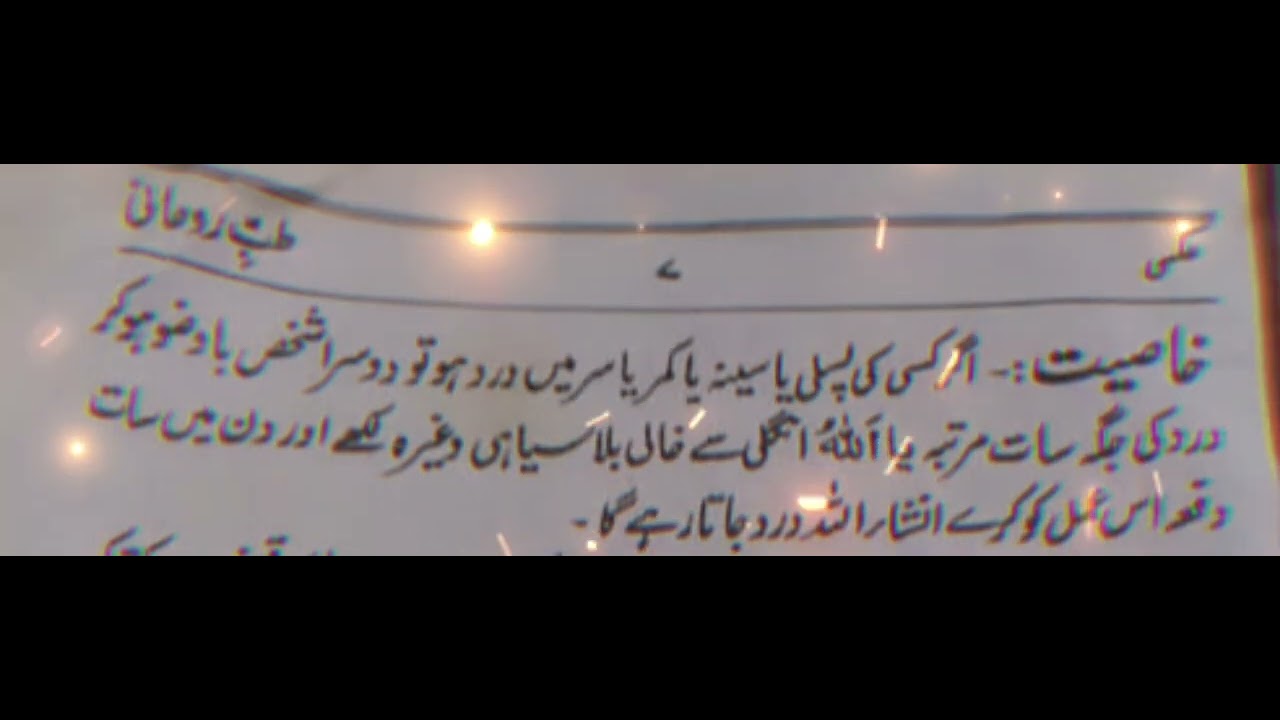 عکسی ۷ طبِّ رُوحانی
خاصیت :- اگر کسی کی پسلی یا سینہ یا کمر یا سر میں درد ہو تو دوسرا شخص باوضو ہو کر
درد کی جگہ سات مرتبہ یا اَللّٰہُ انگلی سے خالی بلا سیاہی وغیرہ لکھے اور دن میں سات
دفعہ اس عمل کو کرے انشاراللہ درد جاتا رہے گا -